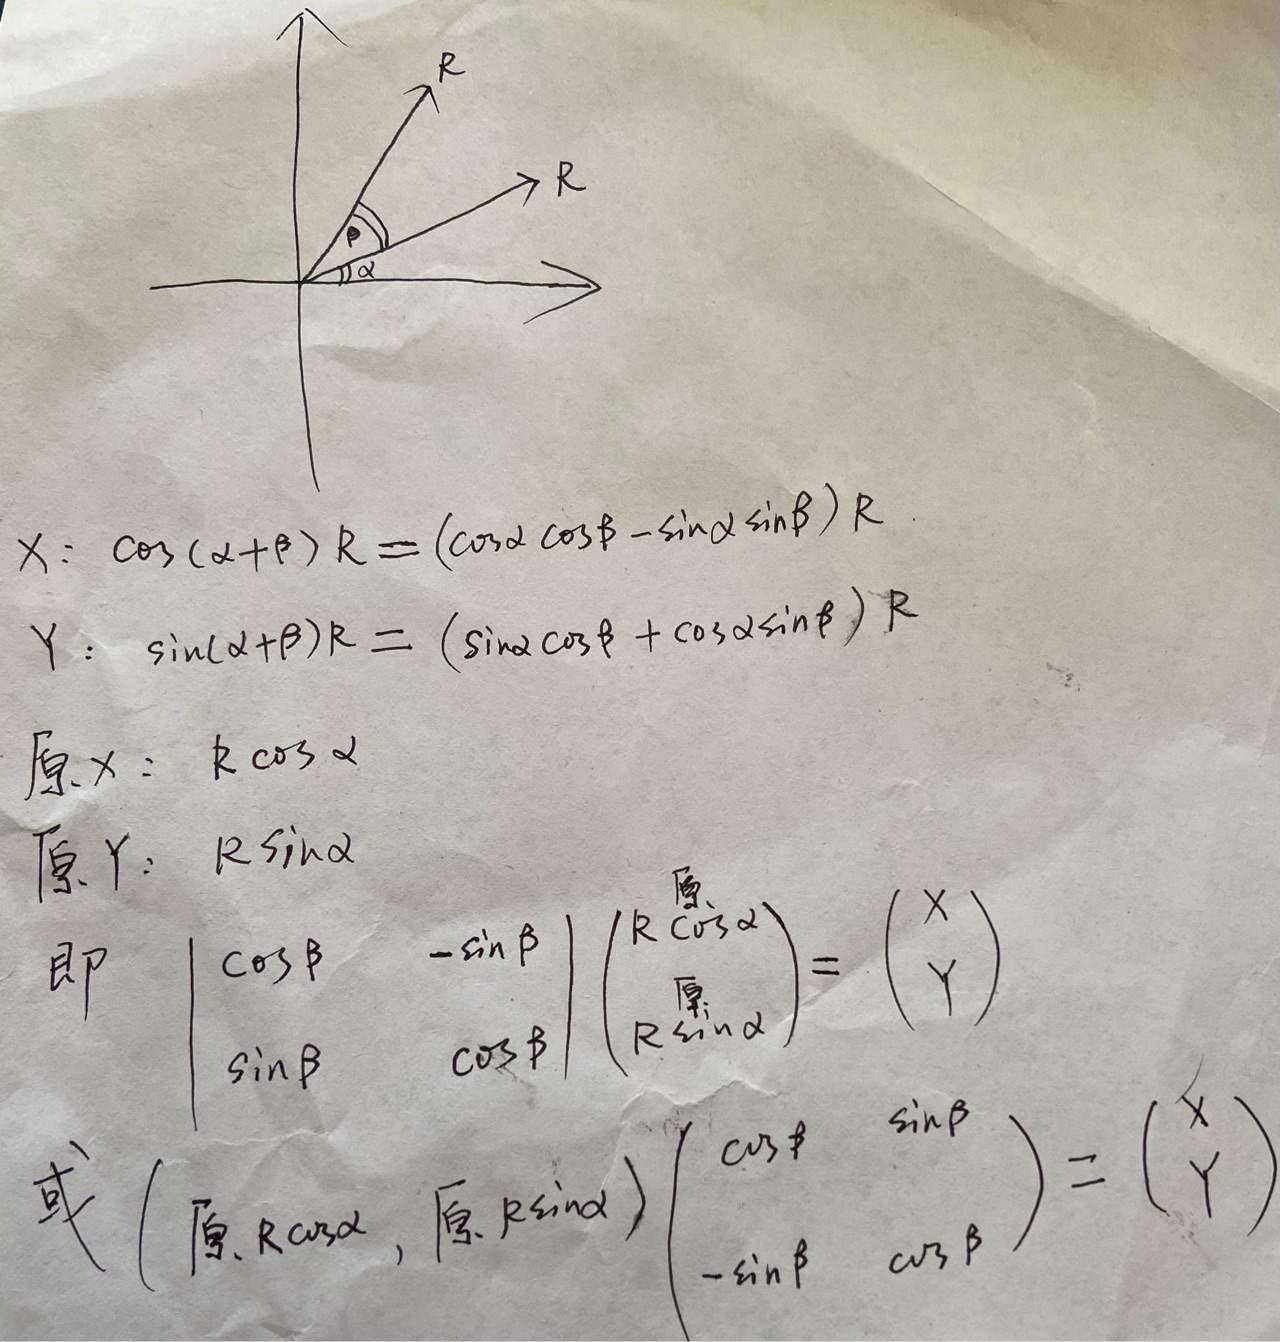 R
R
β
α
X: cos(α+β)R=(cosα cosβ-sinα sinβ)R
Y: sin(α+β)R=(sinα cosβ+cosα sinβ)R
原X: R cosα
原Y: R sinα
即 | cosβ -sinβ | ( 原 R cosα ) = ( X )
| sinβ cosβ | ( 原 R sinα ) ( Y )
或 (原Rcosα, 原Rsinα) ( cosβ sinβ ) = ( X )
( -sinβ cosβ ) ( Y )